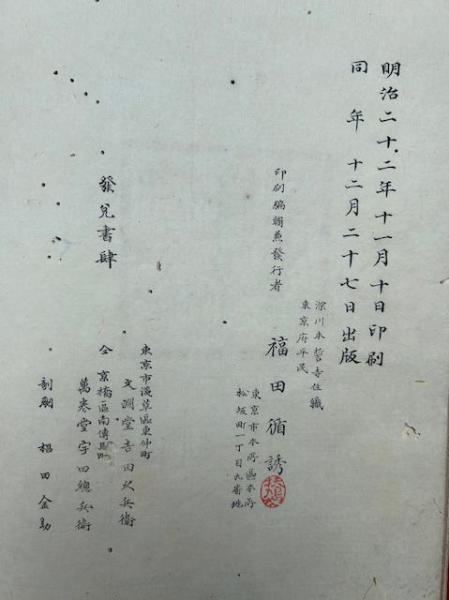 明治二十二年十一月十日印刷
同年十二月二十七日出版
深川本誓寺住職
東京府平民
印刷編輯兼發行者
福田循誘
東京市本所區本所
松坂町一丁目九番地
發兌書肆
東京市淺草區東仲町
文淵堂吉田久兵衛
仝京橋區南傳馬町
萬巻堂宇田總兵衛
刻剞
田金助